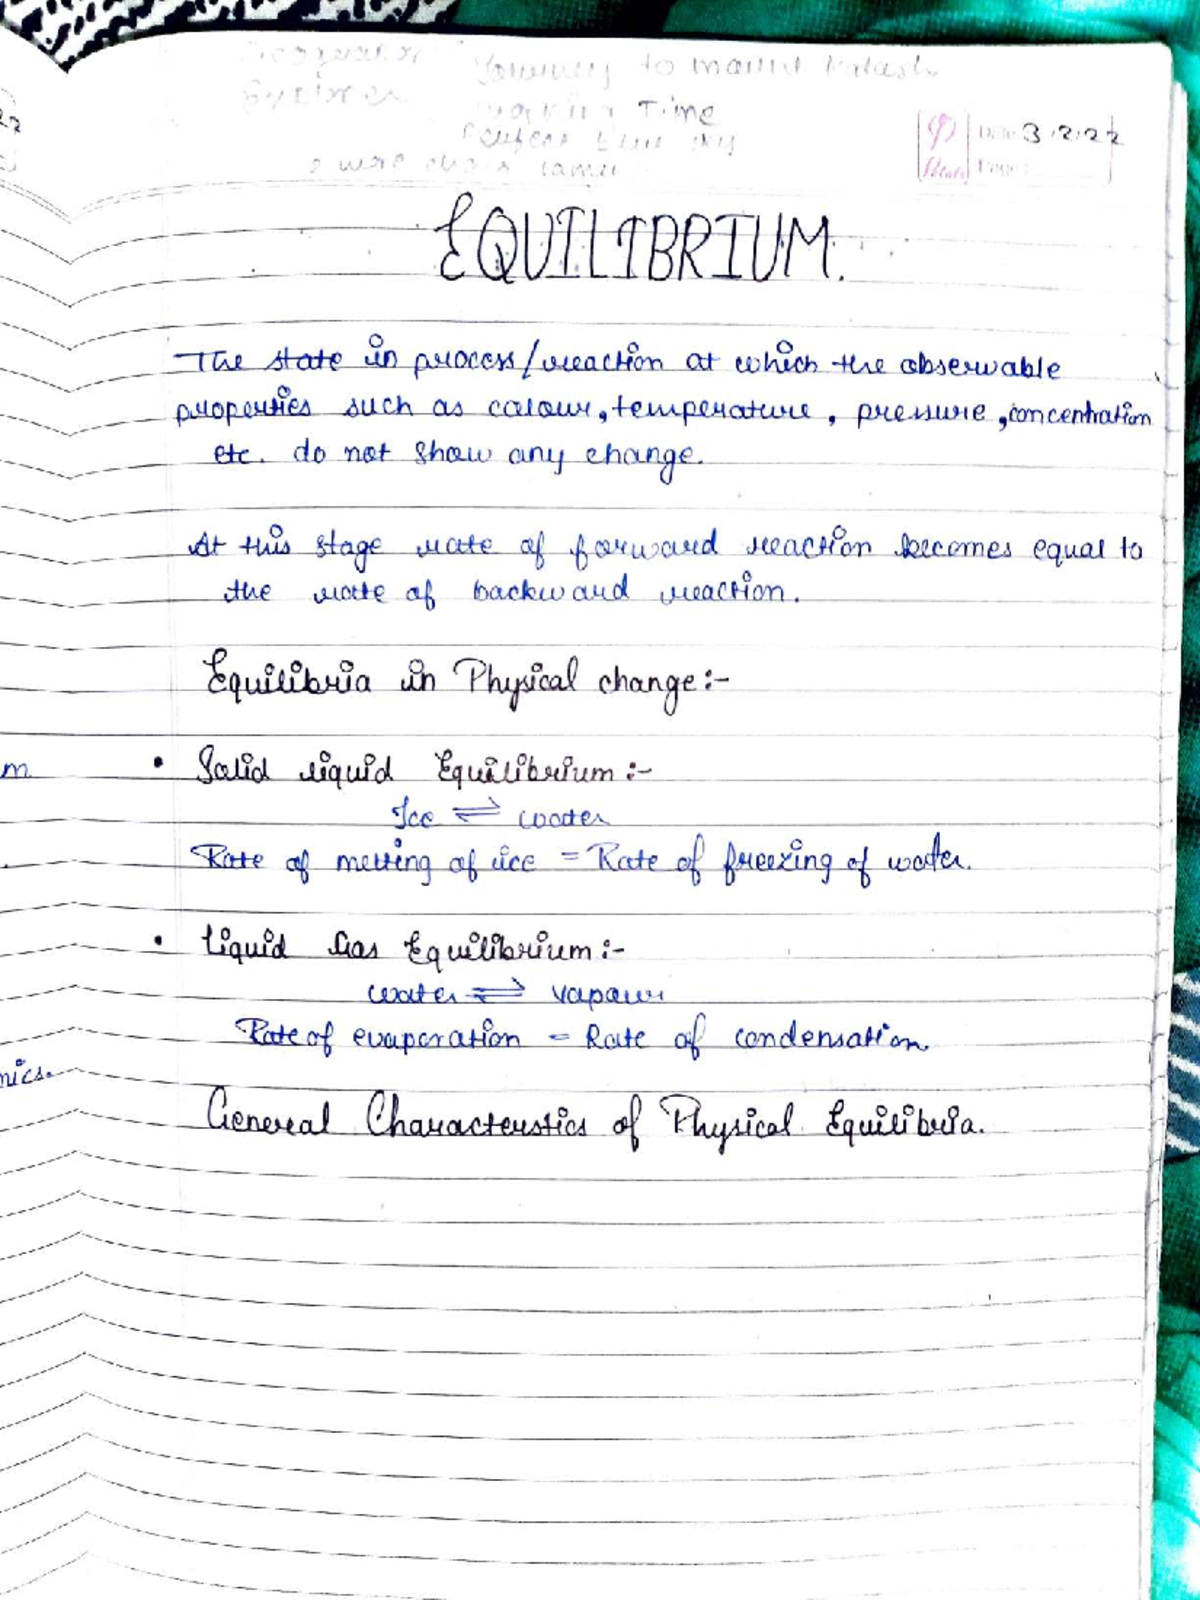 Journey to mount Kailash
Time
Date 3.2.22
Page:
EQUILIBRIUM.
The state in process/reaction at which the observable
properties such as colour, temperature, pressure, concentration
etc. do not show any change.
At this stage rate of forward reaction becomes equal to
the rate of backward reaction.
Equilibria in Physical change:-
m
• Solid liquid Equilibrium:-
Ice ⇌ water
Rate of melting of ice = Rate of freezing of water.
• Liquid Gas Equilibrium:-
water ⇌ vapour
Rate of evaporation = Rate of condensation.
mics.
General Characterstics of Physical Equilibria.